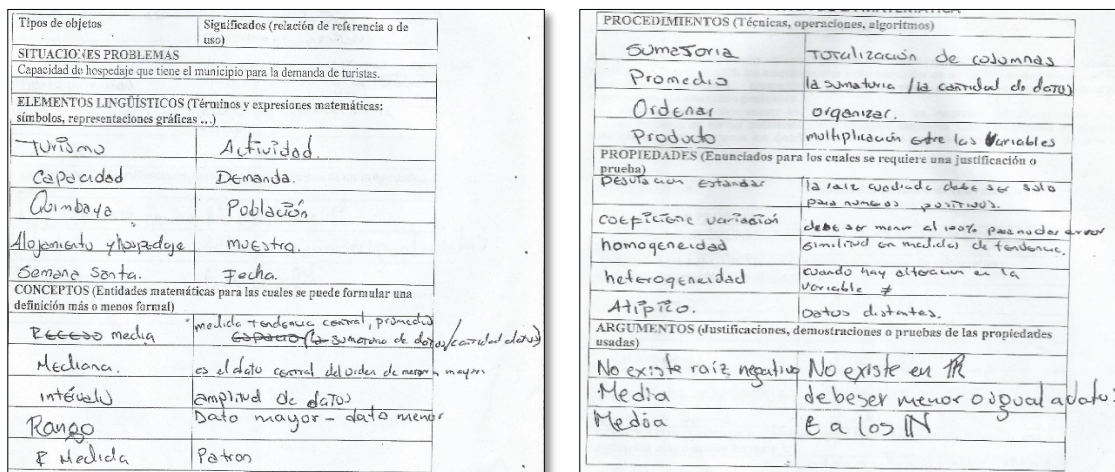 Tipos de objetos Significados (relación de referencia o de
uso)
SITUACIONES PROBLEMAS
Capacidad de hospedaje que tiene el municipio para la demanda de turistas.
ELEMENTOS LINGÜÍSTICOS (Términos y expresiones matemáticas:
símbolos, representaciones gráficas ...)
Turismo Actividad.
Capacidad Demanda.
Quimbaya Población
Alojamiento y hospedaje muestra.
Semana Santa. Fecha.
CONCEPTOS (Entidades matemáticas para las cuales se puede formular una
definición más o menos formal)
media medida tendencia central, promedio
(la sumatoria de datos/cantidad datos)
Mediana. es el dato central del orden de menor a mayor
intérvalo amplitud de datos
Rango Dato mayor - dato menor
Medida Patron
PROCEDIMIENTOS (Técnicas, operaciones, algoritmos)
Sumatoria Totalización de columnas
Promedio la sumatoria / la cantidad de datos
Ordenar organizar.
Producto multiplicación entre las Variables
PROPIEDADES (Enunciados para los cuales se requiere una justificación o
prueba)
Desviación Estandar la raiz cuadrada debe ser solo
para numeros positivos.
coeficiente variación debe ser menor al 100% para no dar error
homogeneidad similitud en medidas de tendencia.
heterogeneidad cuando hay alteración en la
variable ≠
Atípico. Datos distantes.
ARGUMENTOS (Justificaciones, demostraciones o pruebas de las propiedades
usadas)
No existe raíz negativa No existe en ℝ
Media debe ser menor o igual a datos
Media ∈ a los ℕ